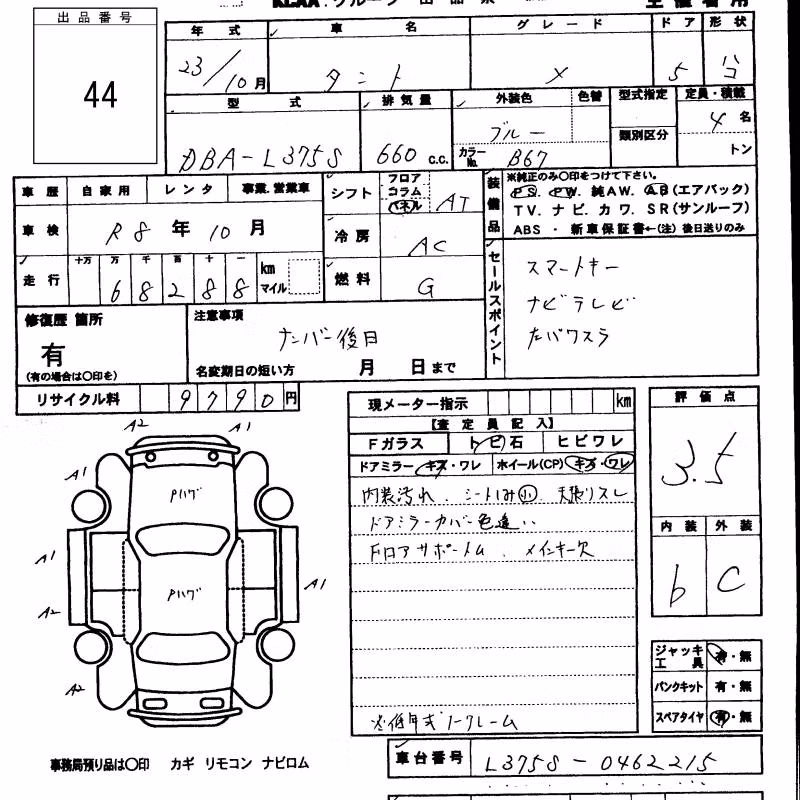 出品番号
44
年式 車名 グレード ドア 形状
23/10月 タント X 5
型式 排気量 外装色 色替 型式指定 定員・積載
DBA-L375S 660 c.c. ブルー カラーNo. B67 類別区分 4名 トン
車歴 自家用 レンタ 事業.営業車
車検 R8年10月
走行 十万 万 千 百 十 一 km マイル
68288
シフト フロア コラム パネル AT
冷房 AC
燃料 G
装備品 ※純正のみ〇印をつけて下さい。
PS. PW. 純AW. AB(エアバック)
TV. ナビ. カワ. SR(サンルーフ)
ABS ・ 新車保証書←(注) 後日送りのみ
セールスポイント
スマートキー
ナビテレビ
修復歴 箇所
有
(有の場合は〇印を)
注意事項
ナンバー後日
名変期日の短い方 月 日まで
リサイクル料 9790円
現メーター指示 km
【査定員記入】
Fガラス トビ石 ヒビワレ
ドアミラー キズ・ワレ ホイール(CP) キズ・ワレ
内装汚れ. シート
ドアミラーカバー色違い
メインキー欠
評価点
3.5
内装 外装
b C
A2 A1
A1 A1
Pハゲ
A1 A1
Pハゲ
A2
A2
ジャッキ工具 有・無
パンクキット 有・無
スペアタイヤ 有・無
車台番号 L375S-0462215
事務局預り品は〇印 カギ リモコン ナビロム